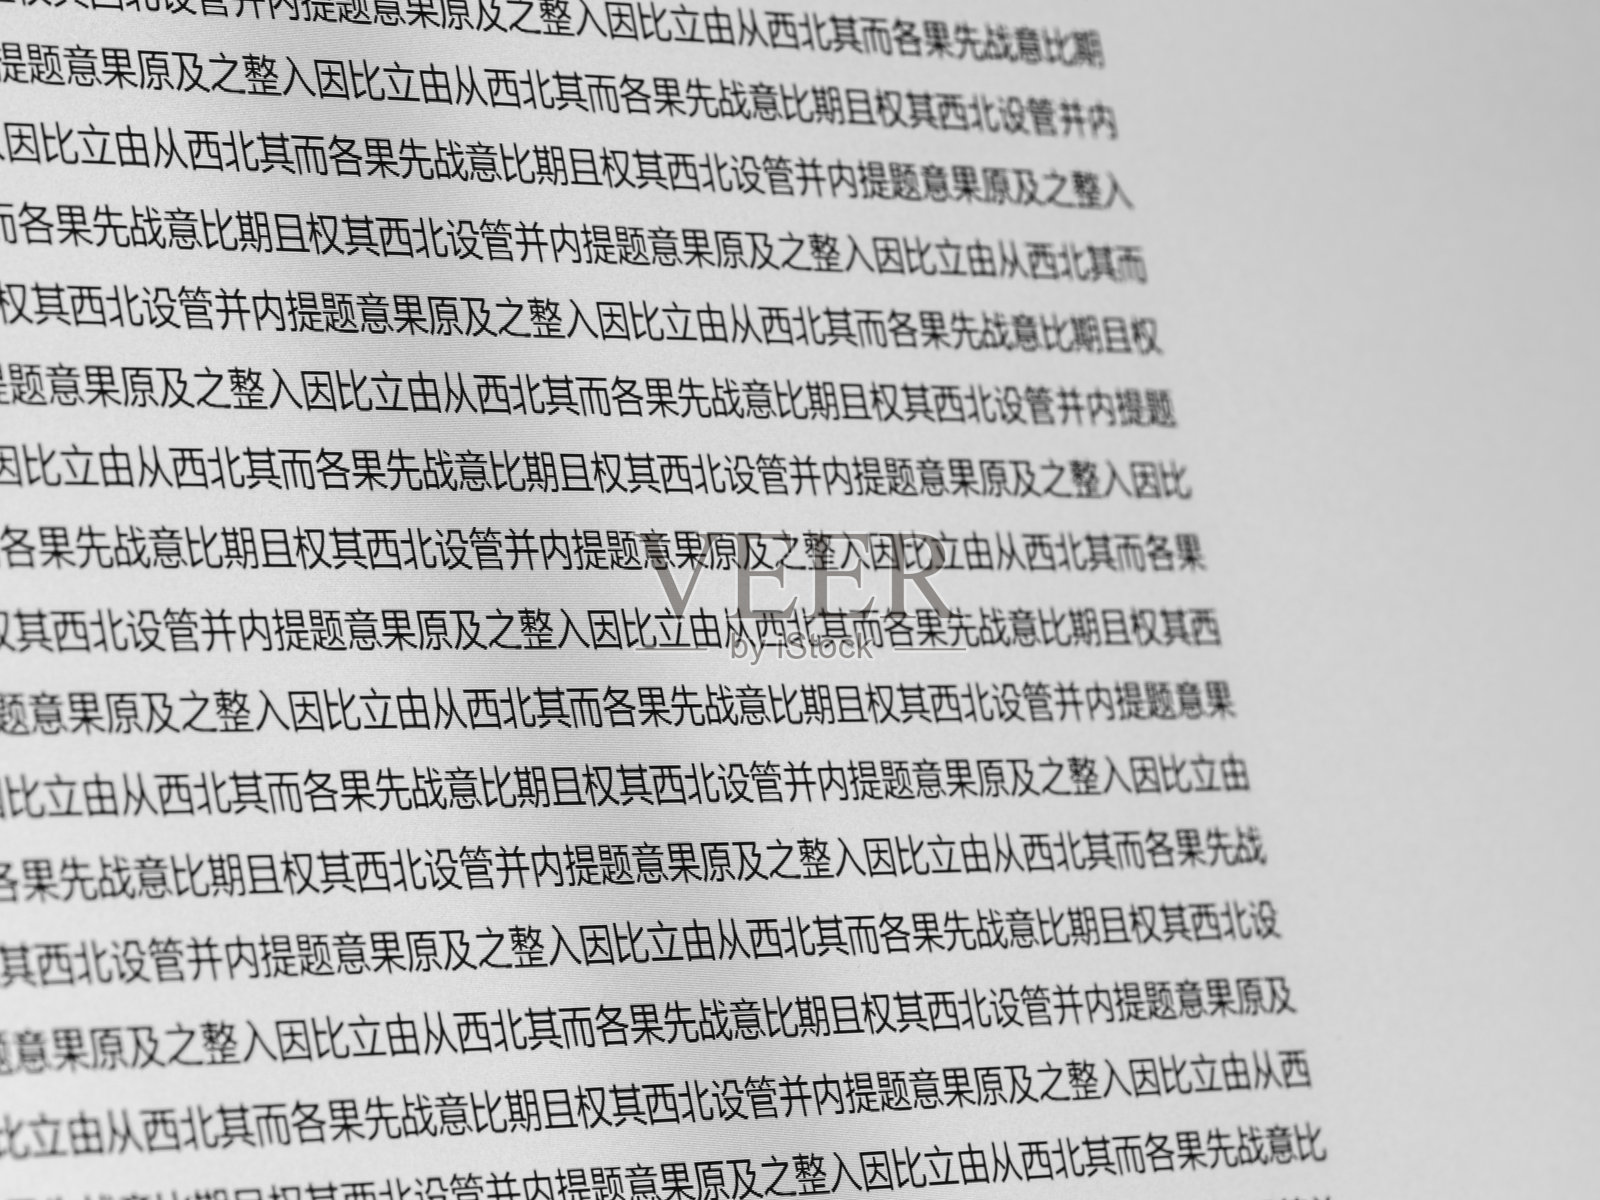 其西北设管并内提题意果原及之整入因比立由从西北其而各果先战意比期
提题意果原及之整入因比立由从西北其而各果先战意比期且权其西北设管并内
因比立由从西北其而各果先战意比期且权其西北设管并内提题意果原及之整入
而各果先战意比期且权其西北设管并内提题意果原及之整入因比立由从西北其而
权其西北设管并内提题意果原及之整入因比立由从西北其而各果先战意比期且权
提题意果原及之整入因比立由从西北其而各果先战意比期且权其西北设管并内提题
因比立由从西北其而各果先战意比期且权其西北设管并内提题意果原及之整入因比
各果先战意比期且权其西北设管并内提题意果原及之整入因比立由从西北其而各果
权其西北设管并内提题意果原及之整入因比立由从西北其而各果先战意比期且权其西
题意果原及之整入因比立由从西北其而各果先战意比期且权其西北设管并内提题意果
因比立由从西北其而各果先战意比期且权其西北设管并内提题意果原及之整入因比立由
各果先战意比期且权其西北设管并内提题意果原及之整入因比立由从西北其而各果先战
其西北设管并内提题意果原及之整入因比立由从西北其而各果先战意比期且权其西北设
题意果原及之整入因比立由从西北其而各果先战意比期且权其西北设管并内提题意果原及
比立由从西北其而各果先战意比期且权其西北设管并内提题意果原及之整入因比立由从西
战意比期且权其西北设管并内提题意果原及之整入因比立由从西北其而各果先战意比
VEER
by iStock